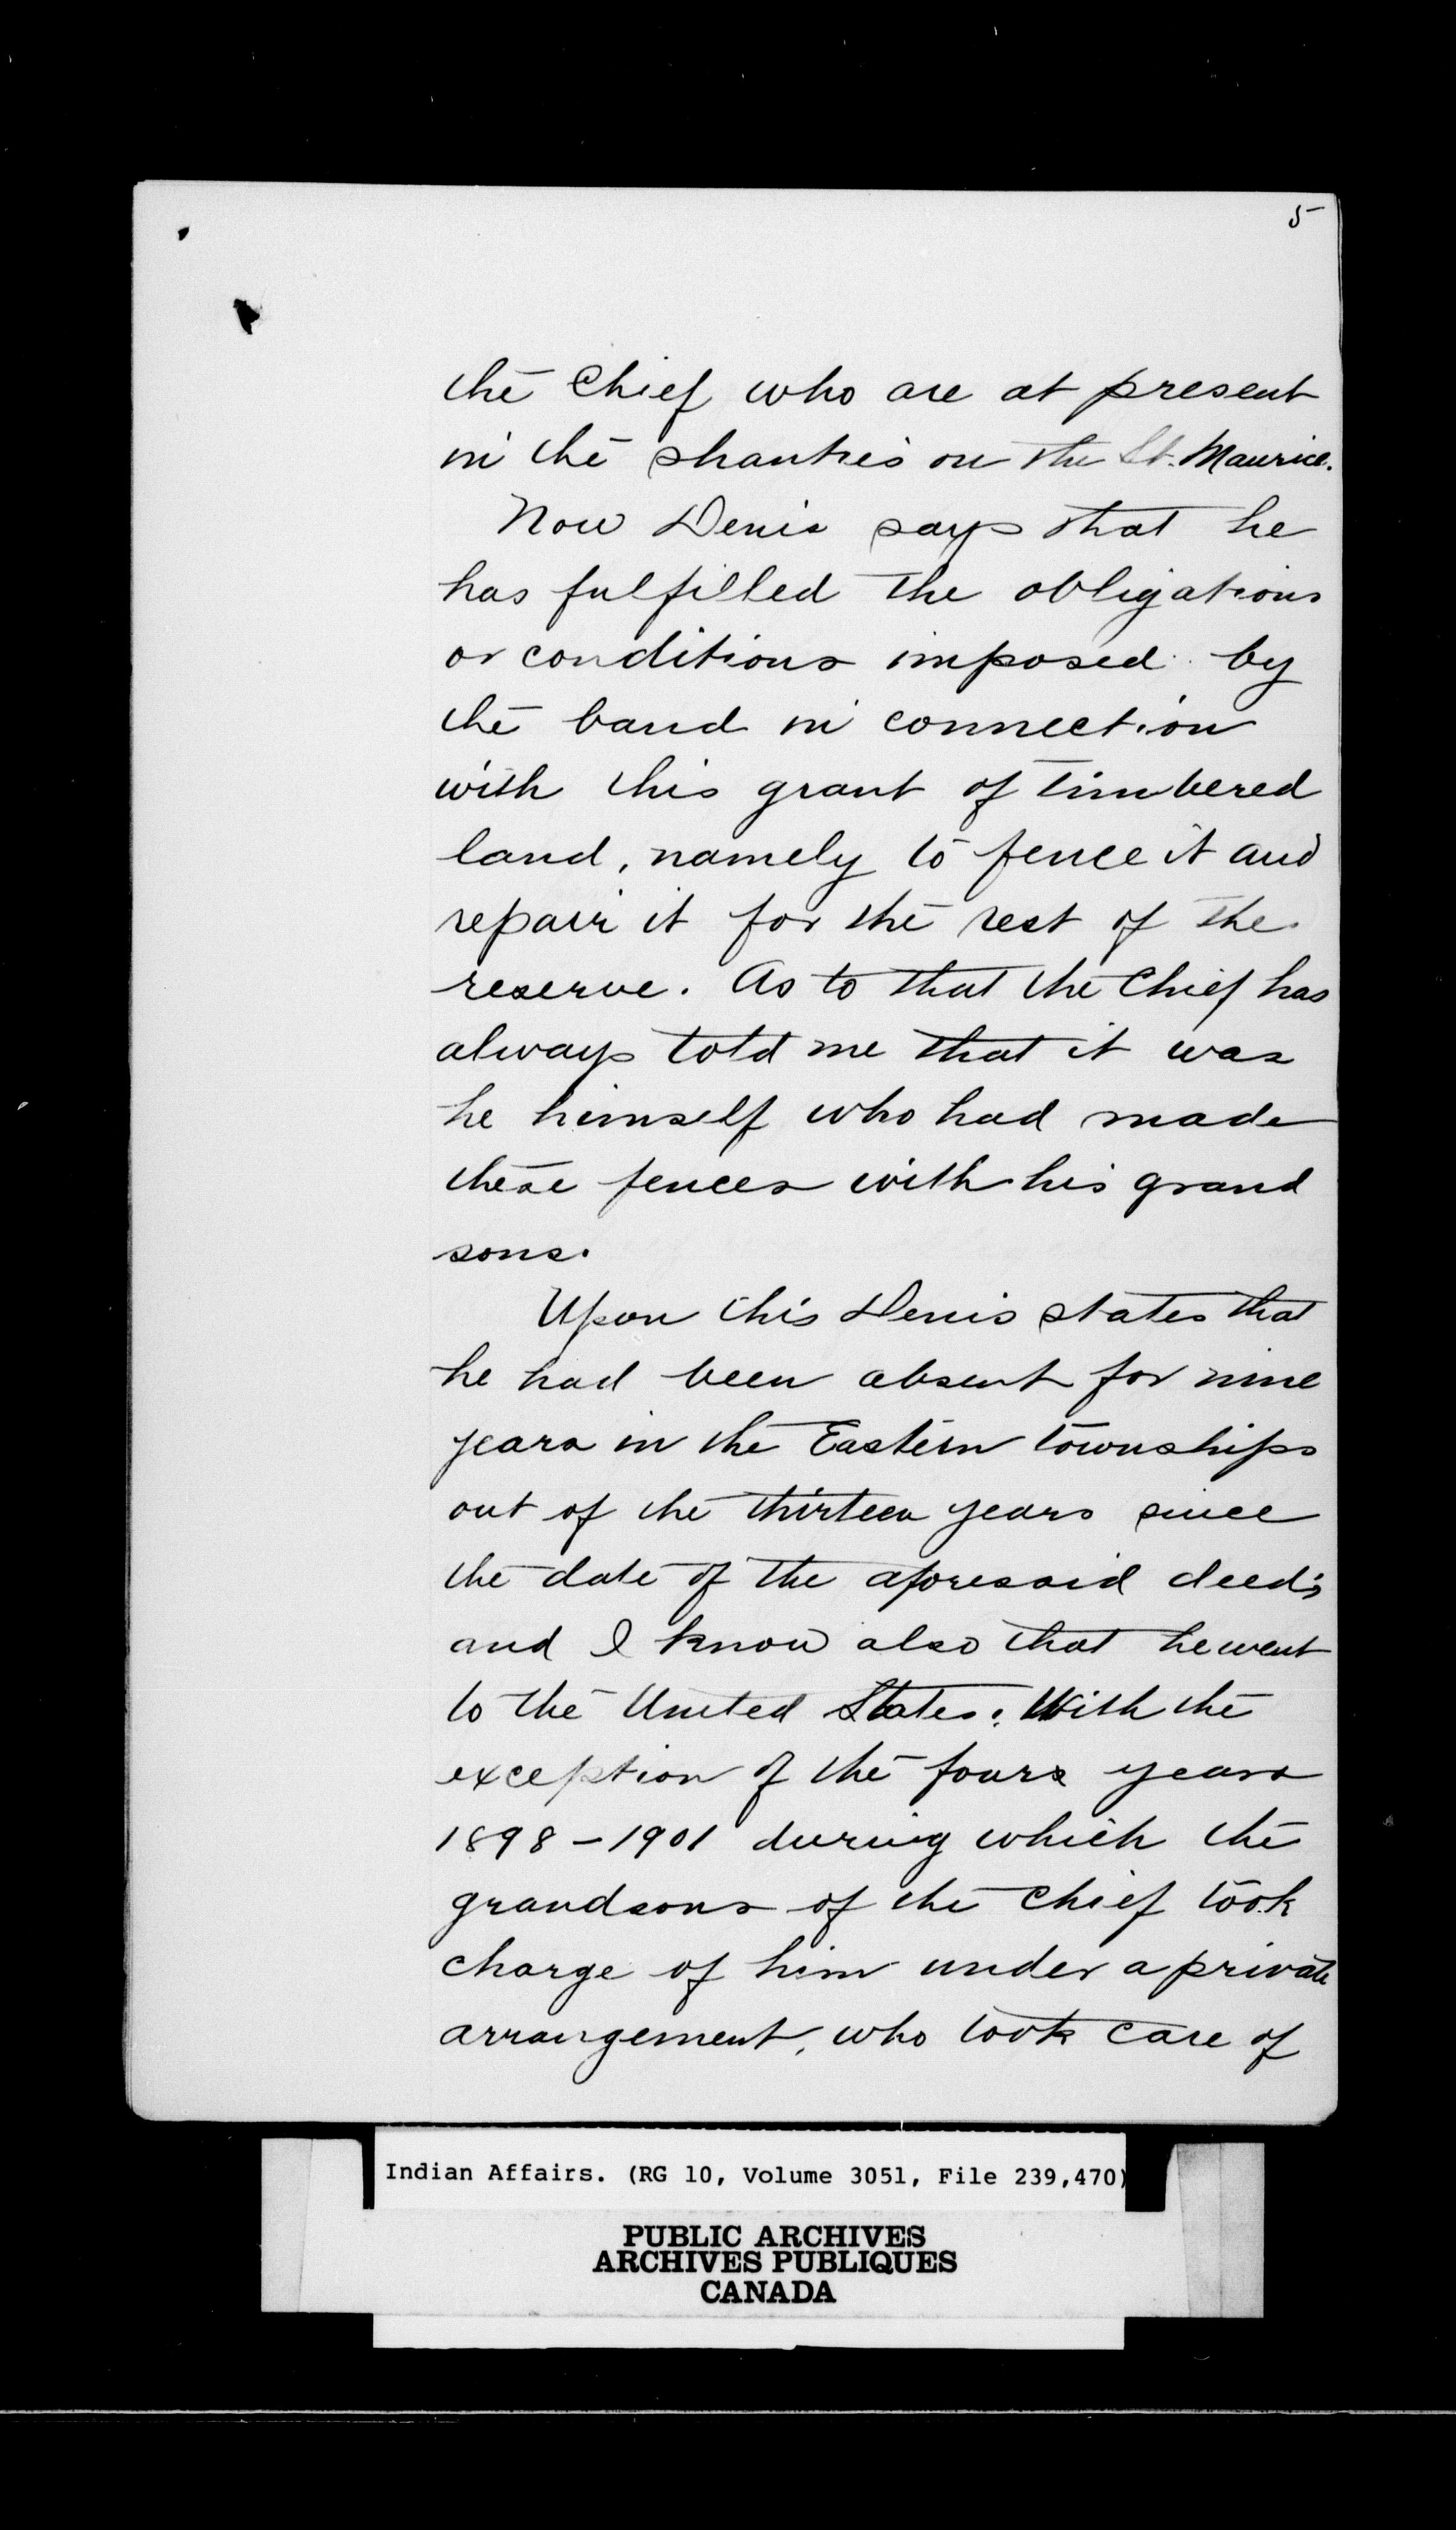 5
the Chief who are at present
in the shanties on the St. Maurice.
Now Denis says that he
has fulfilled the obligations
or conditions imposed by
the band in connection
with this grant of timbered
land, namely to fence it and
repair it for the rest of the
reserve. As to that the Chief has
always told me that it was
he himself who had made
these fences with his grand
sons.
Upon this Denis states that
he had been absent for nine
years in the Eastern townships
out of the thirteen years since
the date of the aforesaid deeds,
and I know also that he went
to the United States. With the
exception of the fours years
1898-1901 during which the
grandsons of the Chief took
charge of him under a private
arrangement, who took care of
Indian Affairs. (RG 10, Volume 3051, File 239,470)
PUBLIC ARCHIVES
ARCHIVES PUBLIQUES
CANADA